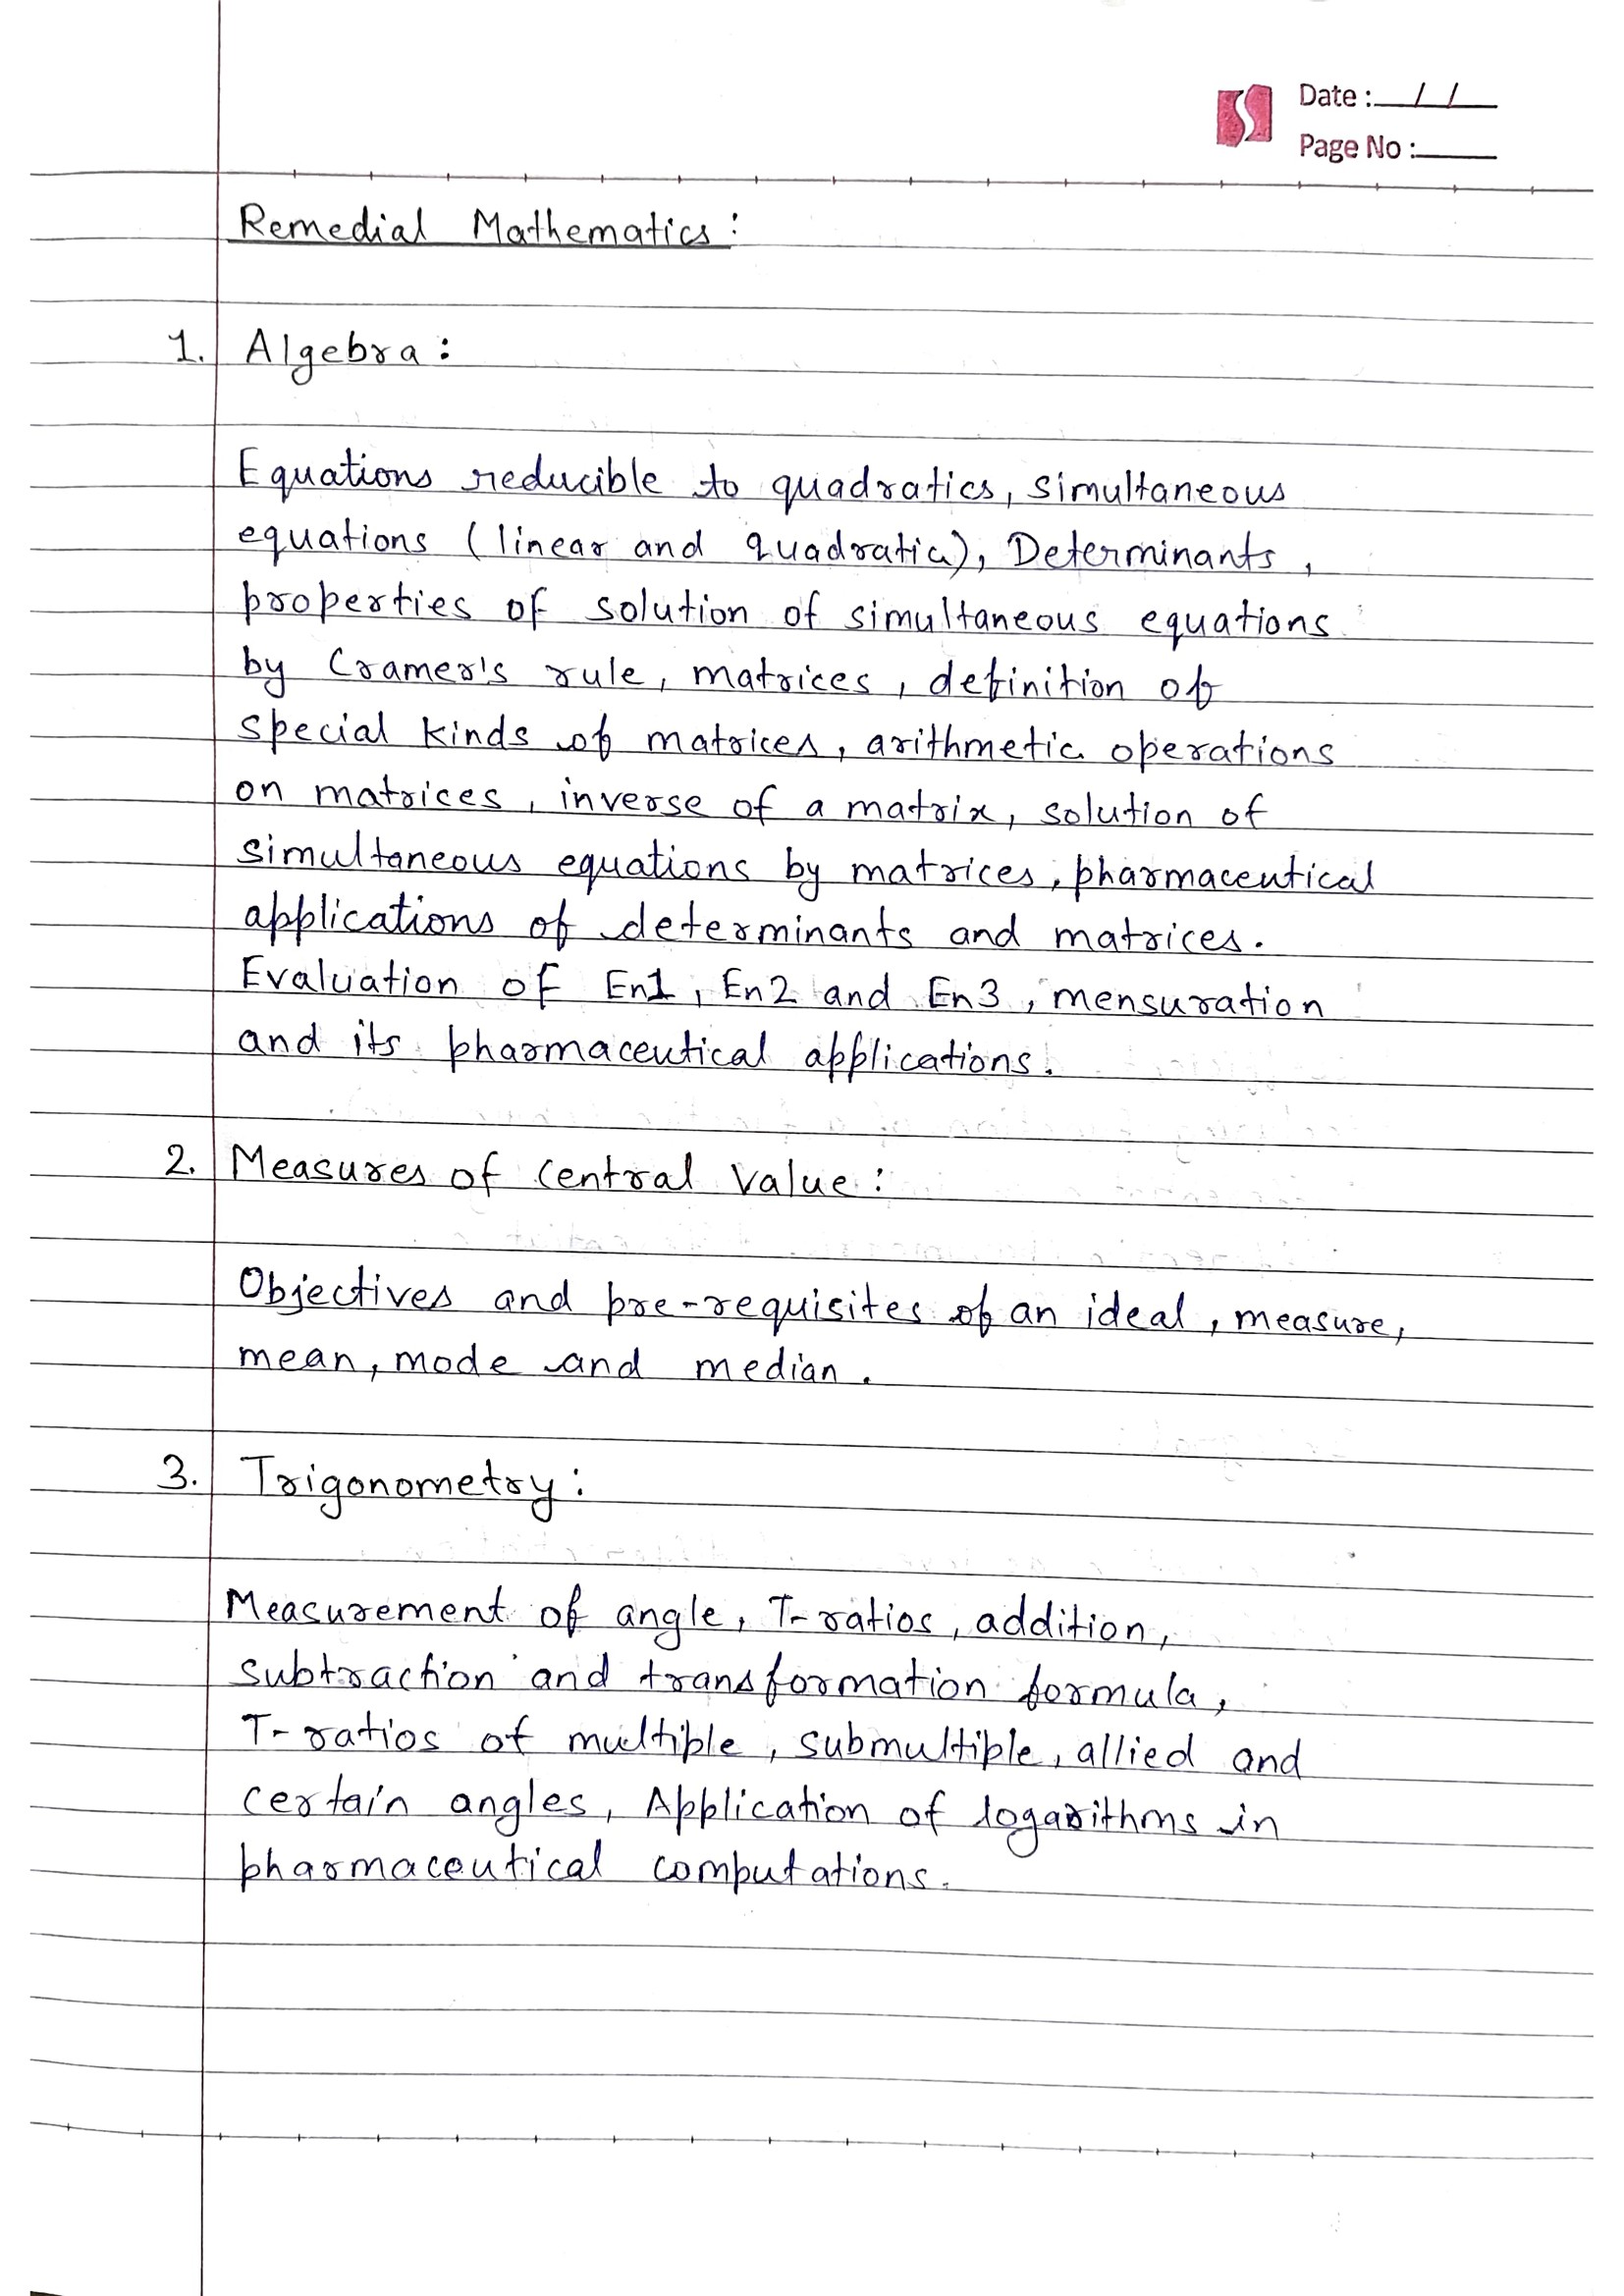 Date : / /
Page No :
Remedial Mathematics :
1. Algebra :
Equations reducible to quadratics, simultaneous
equations (linear and quadratic), Determinants,
properties of solution of simultaneous equations
by Cramer's rule, matrices, definition of
special kinds of matrices, arithmetic operations
on matrices, inverse of a matrix, solution of
simultaneous equations by matrices, pharmaceutical
applications of determinants and matrices.
Evaluation of En1, En2 and En3, mensuration
and its pharmaceutical applications.
2. Measures of Central Value :
Objectives and pre-requisites of an ideal, measure,
mean, mode and median.
3. Trigonometry :
Measurement of angle, T-ratios, addition,
subtraction and transformation formula,
T-ratios of multiple, submultiple, allied and
certain angles, Application of logarithms in
pharmaceutical computations.